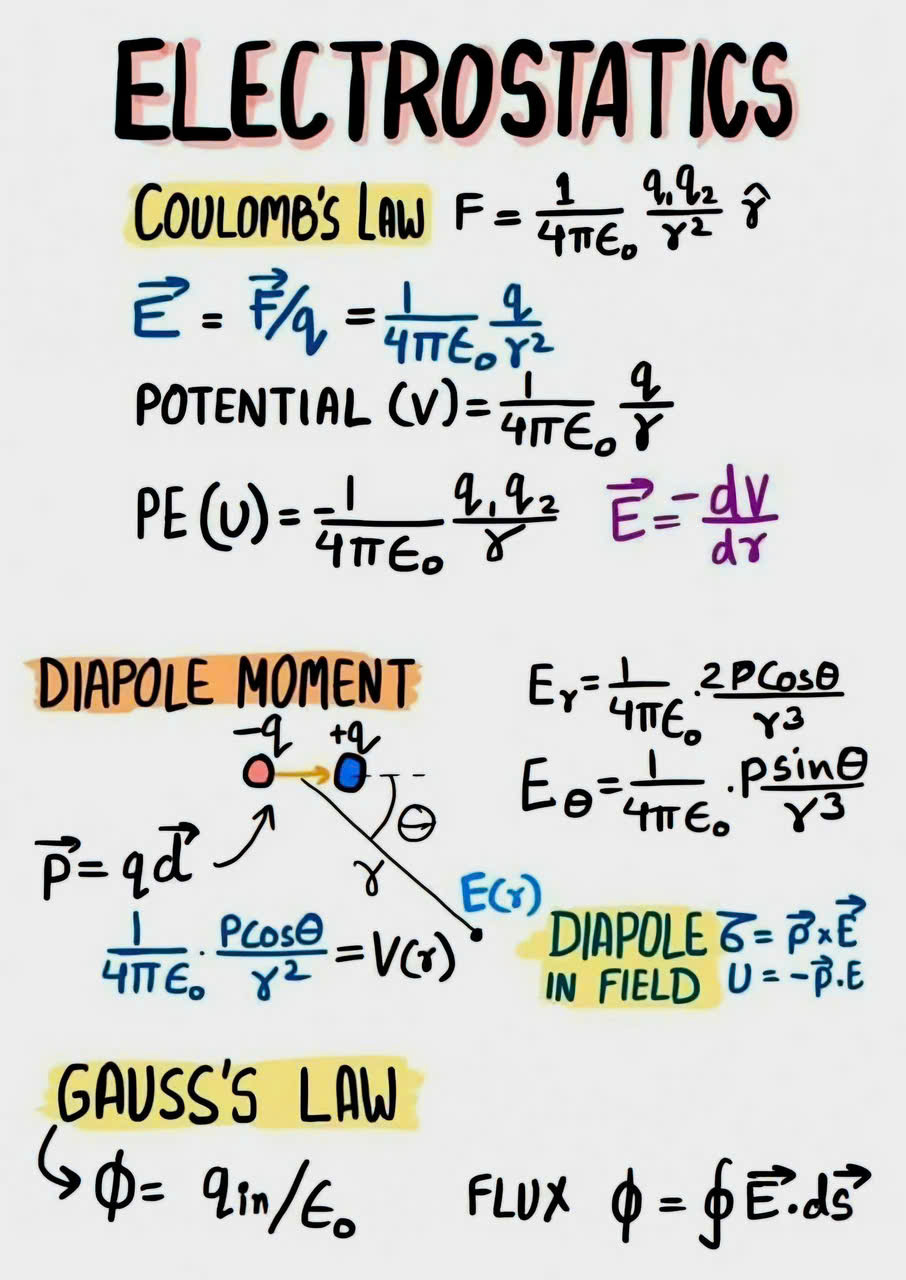 ELECTROSTATICS
COULOMB'S LAW F = 1/4πϵ₀ q₁q₂/r² r̂
E⃗ = F⃗/q = 1/4πϵ₀ q/r²
POTENTIAL (V) = 1/4πϵ₀ q/r
PE (U) = -1/4πϵ₀ q₁q₂/r E⃗ = -dV/dr
DIAPOLE MOMENT
-q +q
θ
r
P⃗ = qd⃗
E(r)
1/4πϵ₀ . PCosθ/r² = V(r)
Eᵣ = 1/4πϵ₀ . 2PCosθ/r³
E_θ = 1/4πϵ₀ . Psinθ/r³
DIAPOLE IN FIELD
τ = p⃗ × E⃗
U = -p⃗ . E
GAUSS'S LAW
ϕ = qin/ϵ₀
FLUX ϕ = ∮ E⃗ . ds⃗